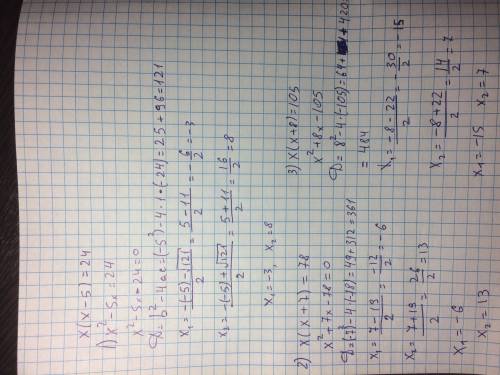 x(x-5)=24
1) x²-5x=24
x²-5x-24=0
D=b²-4ac=(-5)²-4·1·(-24)=25+96=121
x₁=-(-5)-√121/2=5-11/2=-6/2=-3
x₂=-(-5)+√121/2=5+11/2=16/2=8
x₁=-3, x₂=8
2) x(x+7)=78
x²+7x-78=0
D=(-7)²-4(-78)=49+312=361
x₁=7-19/2=-12/2=-6
x₂=7+19/2=26/2=13
x₁=-6
x₂=13
3) x(x+8)=105
x²+8x-105
D=8²-4·(-105)=64+420=
=484
x₁=-8-22/2=-30/2=-15
x₂=-8+22/2=14/2=7
x₁=-15 x₂=7